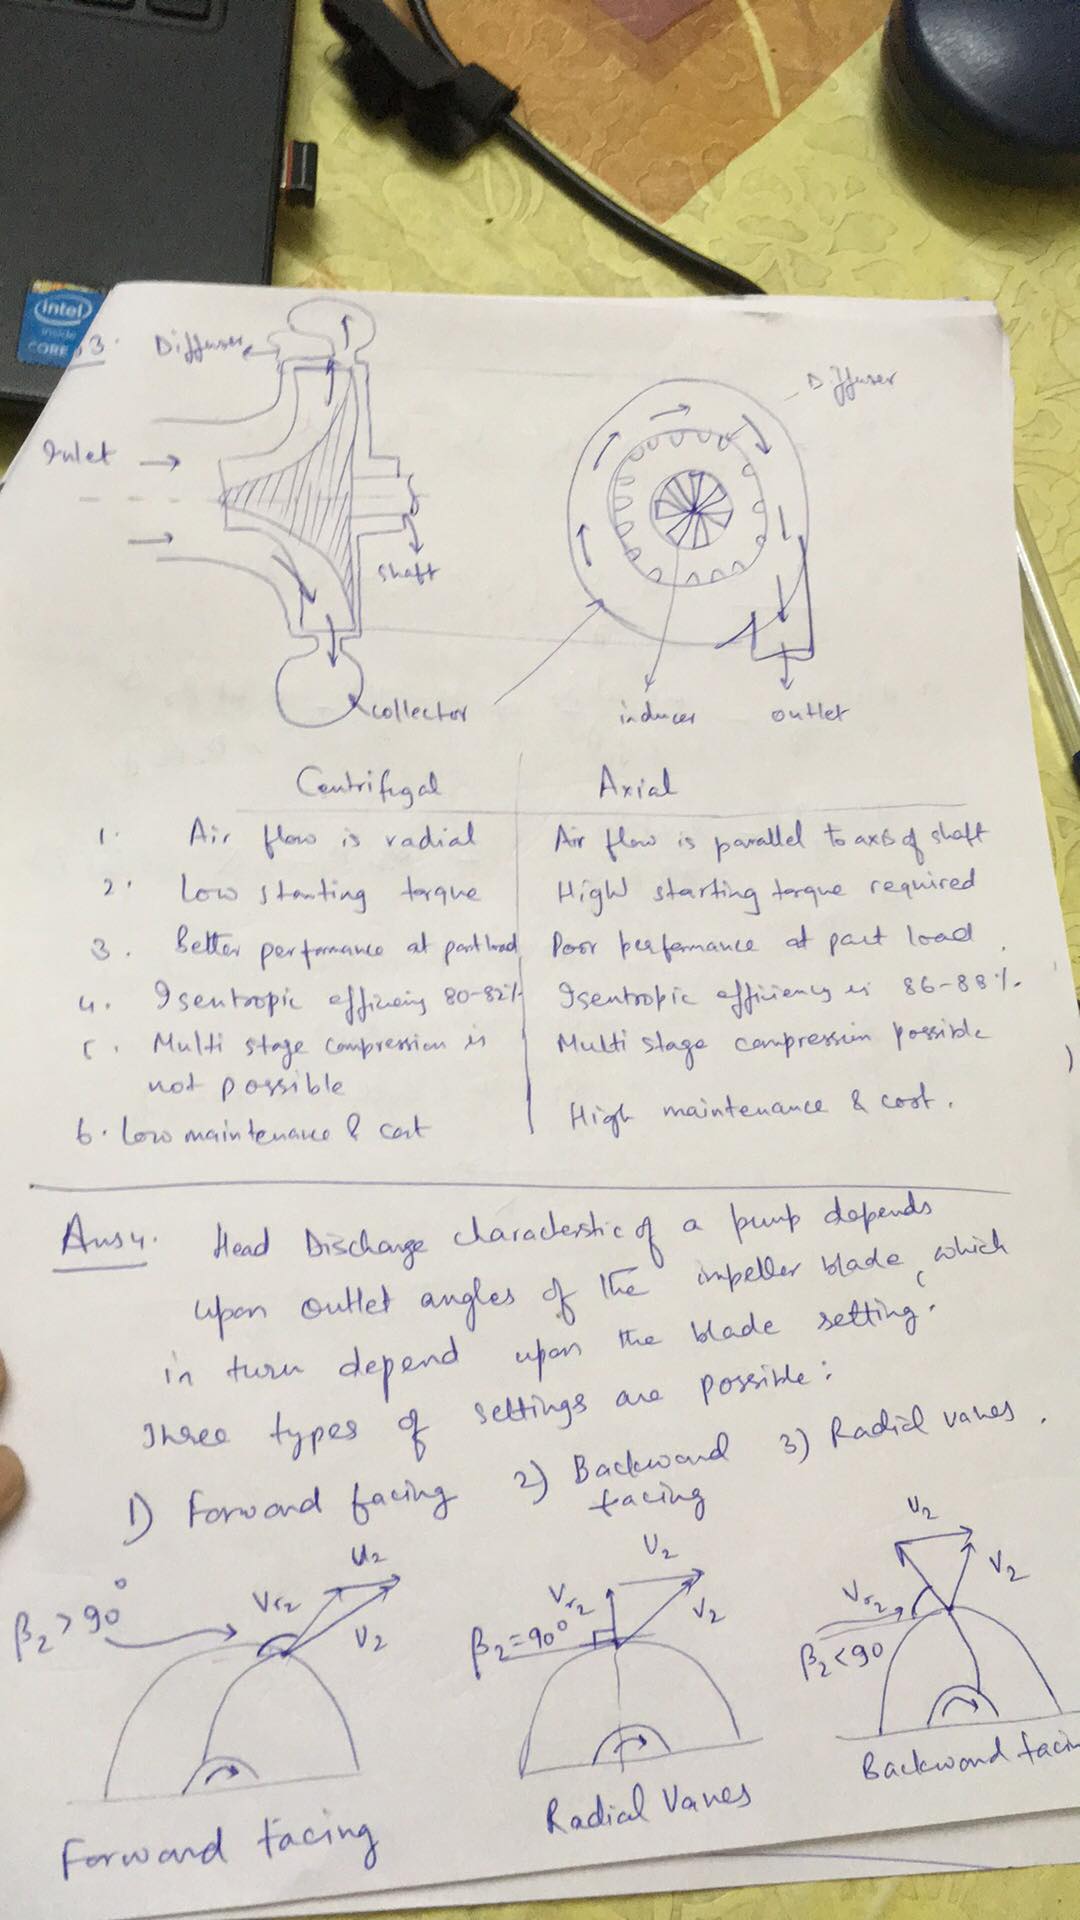 intel
inside
CORE i3
3.
Diffuser
Diffuser
Inlet
shaft
collector
inducer
outlet
Centrifugal
Axial
1. Air flow is radial
Air flow is parallel to axis of shaft
2. Low starting torque
High starting torque required
3. Better performance at part load
Poor performance at part load.
4. Isentropic efficiency 80-82%
Isentropic efficiency is 86-88%.
5. Multi stage compression is
not possible
Multi stage compression possible
6. Low maintenance & cost
High maintenance & cost.
Ans 4. Head Discharge characterstic of a pump depends
upon outlet angles of the impeller blade, which
in turn depend upon the blade setting.
Three types of settings are possible:
1) Forward facing 2) Backward facing 3) Radial vanes.
β2>90°
Vr2
U2
V2
Forward facing
β2=90°
Vr2
U2
V2
Radial Vanes
β2<90
Vr2
U2
V2
Backward facin